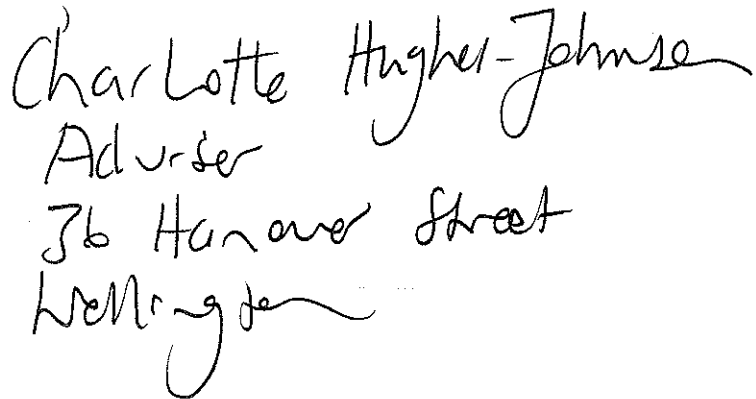 Charlotte Hughes-Johnson
Adviser
36 Hanover Street
Wellington